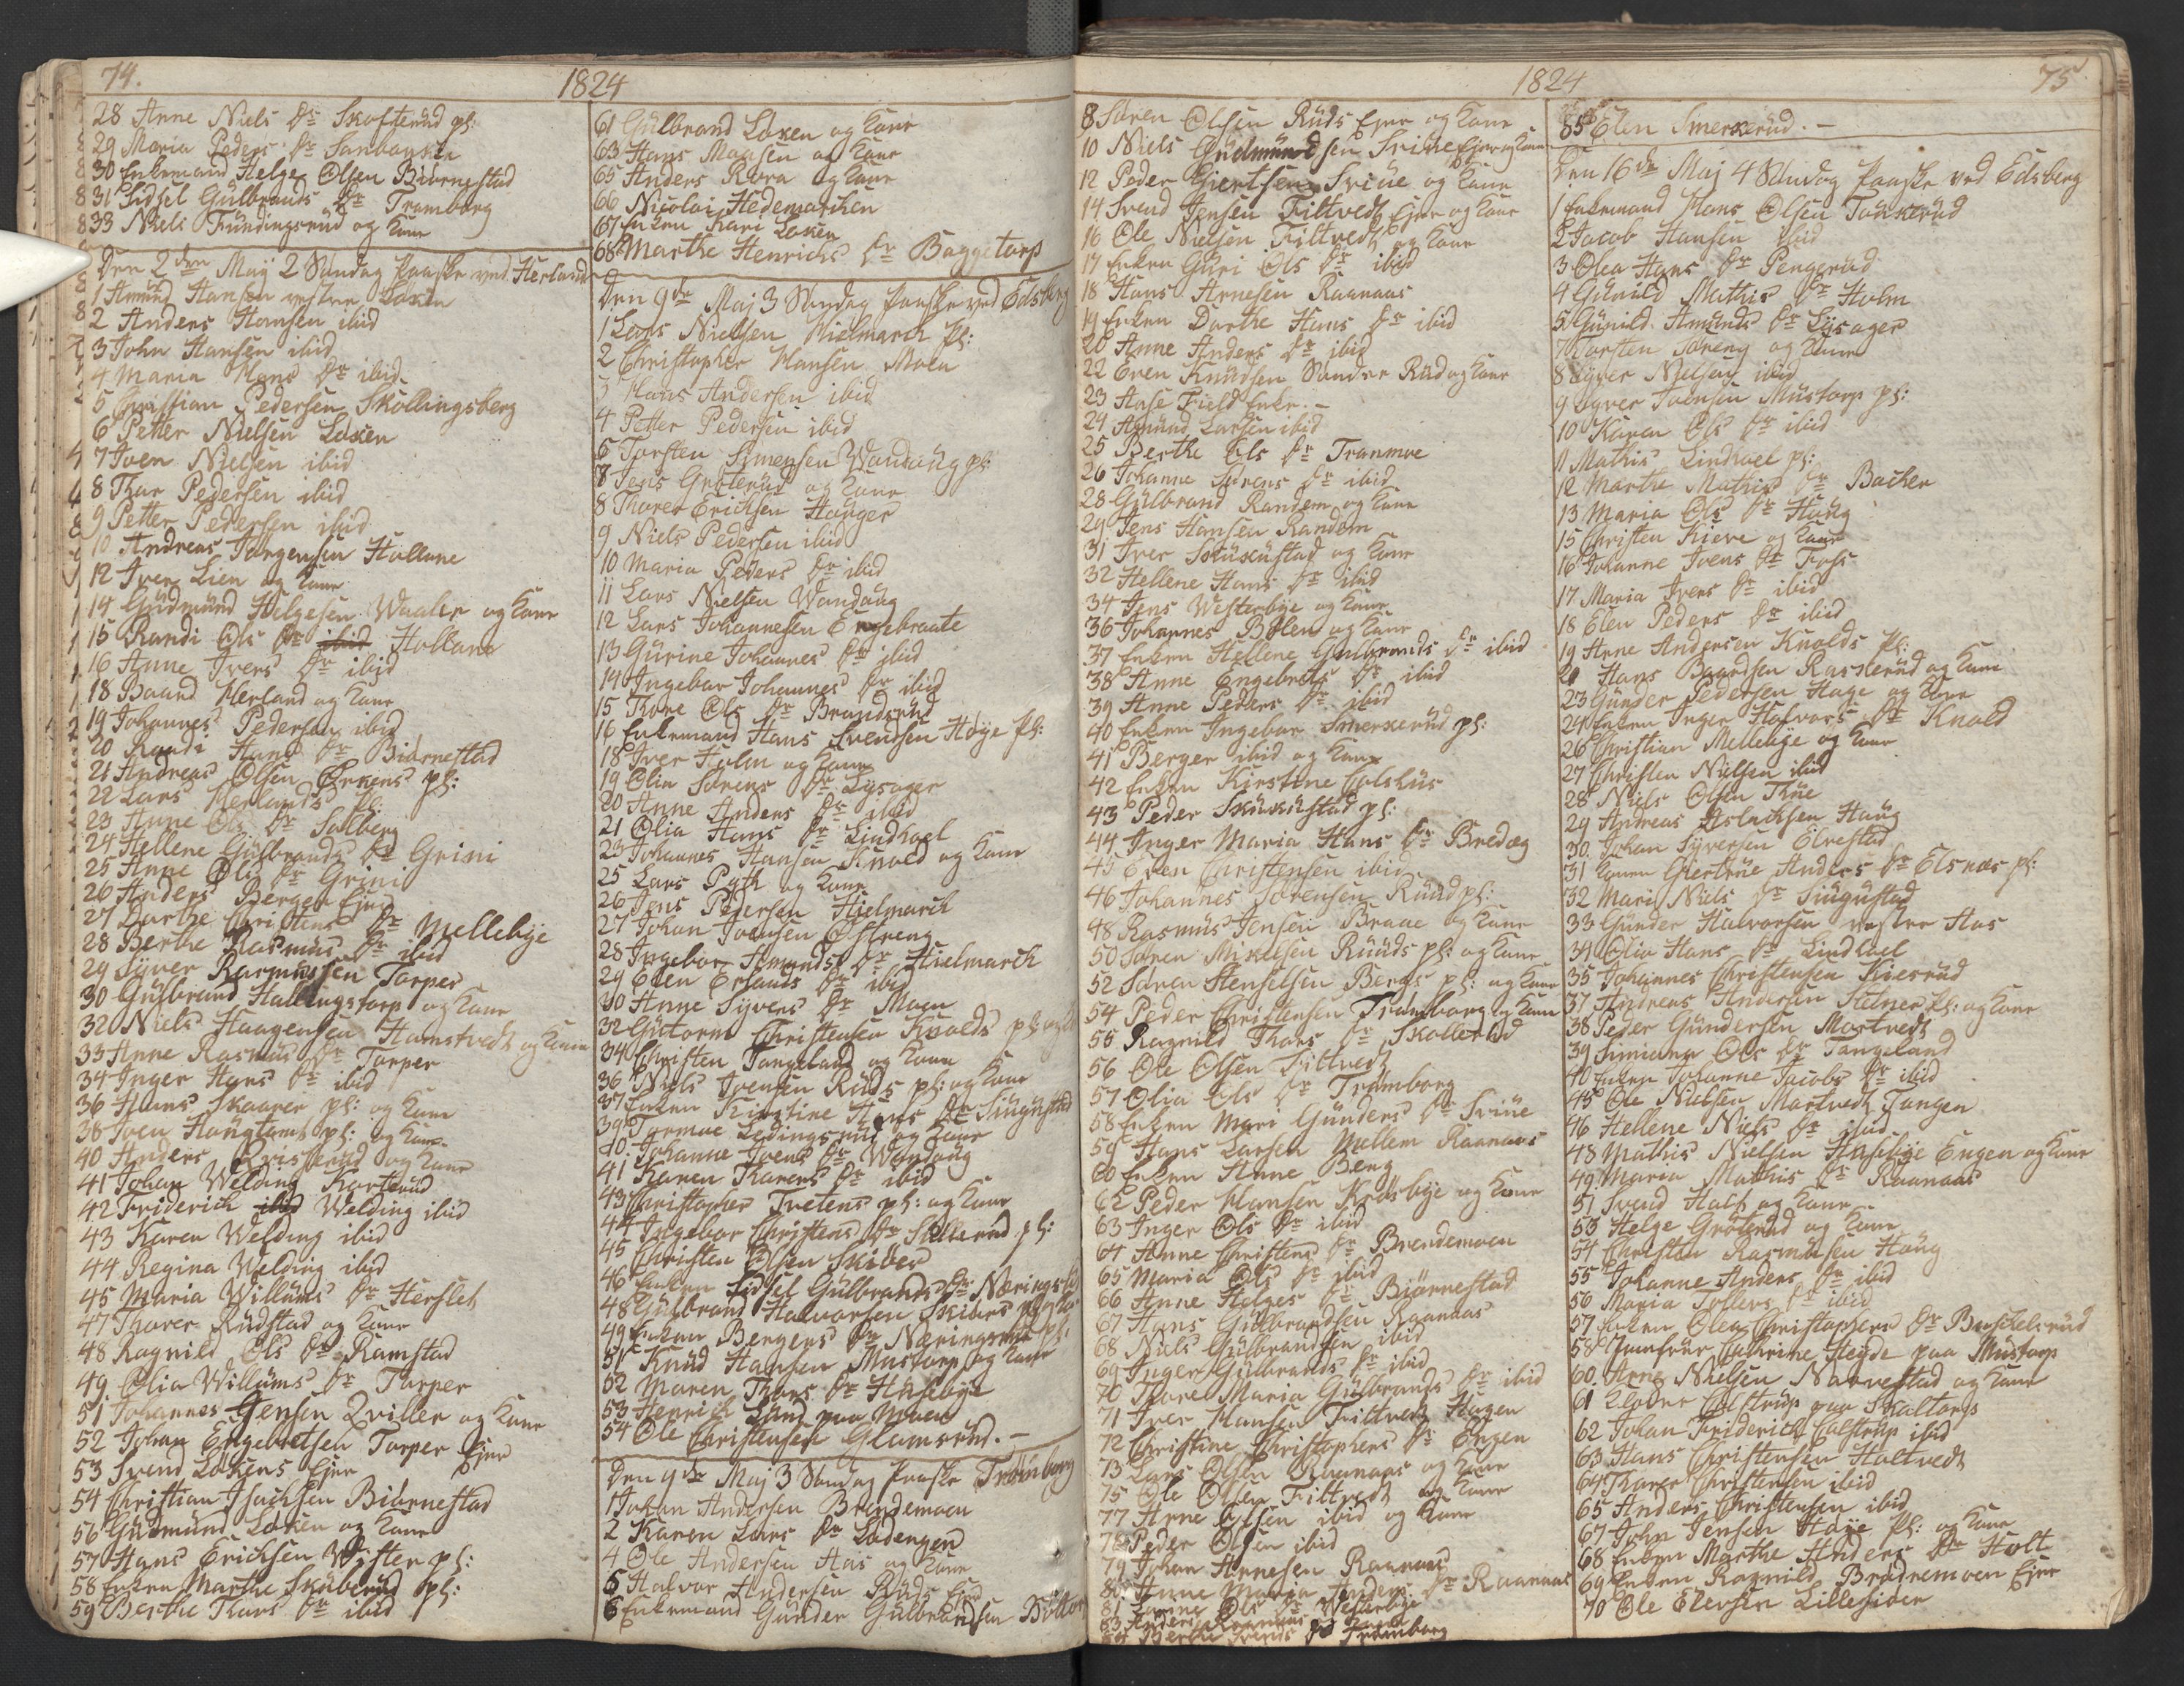 74.
1824
28 Anne Niels Dr Skofterud pl:
29 Maria Peders Dr
30 Enkemand Helge Olsen Biørnestad
31 Sidsel Gulbrands Dr Tramborg
33 Niels Fundingsrud og Kone
Den 2den Maij 2 Søndag Paaske ved Herland
1 Amund Hansen vestre Løken
2 Anders Hansen ibid
3 John Hansen ibid
4 Maria Hans Dr ibid
5 Christian Pedersen Skøllingsberg
6 Petter Nielsen Løken
7 Iven Nielsen ibid
8 Thor Pedersen ibid
9 Petter Pedersen ibid
10 Andreas Jørgensen Hollane
12 Iver Lien og Kone
14 Gudmund Helgesen Waaler og Kone
15 Randi Ols Dr ibid Hollane
16 Anne Ivers Dr ibid
18 Baard Herland og Kone
19 Johannes Pedersen ibid
20 Randi Hans Dr Biørnestad
21 Andreas Olsen Ørkens pl:
22 Lars Herlands pl:
23 Anne Ols Dr Solberg
24 Hellene Gulbrands Dr Grini
25 Anne Ols Dr Grini
26 Anders Berger Ejer
27 Dorthe Christens Dr Mellebye
28 Berthe Rasmus Dr ibid
29 Syver Rasmussen Torper
30 Gulbrand Hallingstorp og Kone
32 Niels Haagensen Hamstvedt og Kone
33 Anne Rasmus Dr Torper
34 Inger Hans Dr ibid
36 Hans Skaarer pl: og Kone
38 Iven Haugtomt pl: og Kone
40 Anders Risterud og Kone
41 Johan Welding Korterud
42 Friderich ibid Welding ibid
43 Karen Welding ibid
44 Regina Welding ibid
45 Maria Willums Dr Herslet
47 Thorer Rudstad og Kone
48 Ragnild Ols Dr Ramstad
49 Olia Willums Dr Torper
51 Johannes Jensen Qviller og Kone
52 Johan Engebretsen Torper Ejer
53 Svend Løkens Ejer
54 Christian Isachsen Biørnestad
56 Gudmund Løken og Kone
57 Hans Erichsen Wister pl:
58 Enken Marthe Skuberud pl:
59 Berthe Thors Dr ibid
61 Gulbrand Løken og Kone
63 Hans Monsen og Kone
65 Anders Rora og Kone
66 Nicolai Hedemarchen
67 Enken Kari Løken
68 Marthe Henrichs Dr Baggetorp
Den 9de Maj 3 Søndag Paaske ved Edsberg
1 Lars Nielsen Hielmarch pl:
2 Christopher Hansen Moen
3 Hans Andersen ibid
4 Petter Pedersen ibid
5 Torsten Simensen Wandaug pl:
7 Jens Grøterud og Kone
8 Thorer Erichsen Hauger
9 Niels Pedersen ibid
10 Maria Peders Dr ibid
11 Lars Nielsen Wandaug
12 Lars Johannesen Engebraate
13 Gurine Johannes Dr ibid
14 Ingebor Johannes Dr ibid
15 Thore Ols Dr Brandsrud
16 Enkemand Hans Svendsen Høye pl:
18 Iver Holm og Kone
19 Olia Sørens Dr Lysager
20 Anne Anders Dr ibid
21 Olia Hans Dr Lindhoel
23 Johannes Hansen Knold og Kone
25 Lars Pyth og Kone
26 Jens Pedersen Hielmarch
27 Johan Ivensen Østreng
28 Ingebor Amunds Dr Hielmarch
29 Elen Erlands Dr ibid
30 Anne Syvers Dr Moen
32 Guttorm Christensen Knolds pl: og
34 Christen Tangeland og Kone
36 Niels Ivensen Ruds pl: og Kone
37 Enken Kirstine Hans Dr Siugustad
39 Tormoe Ledingsrud og Kone
40 Johanne Ivens Dr Wandaug
41 Karen Thorers Dr ibid
43 Christopher Tvetens pl: og Kone
44 Ingebor Christens Dr Sletterud pl:
45 Christen Olsen Skiber
46 Enken Sidsel Gulbrands Dr
48 Gulbrand Halvorsen Skibers
49 Enken Bergers Dr Næringsrud pl:
51 Knud Hansen Mustorp og Kone
52 Maren Thors Dr Husebye
53 Henrich Lund paa Moen
54 Ole Christensen Glamsrud. -
Den 9de Maj 3 Søndag Paaske Trømborg
1 Johan Andersen Brendemoen
2 Karen Lars Dr Lødengen
4 Ole Andersen Aas og Kone
5 Halvor Andersen Ruds Ejer
6 Enkemand Gunder Gulbrandsen
1824
75
8 Søren Olsen Ruds Ejer og Kone
10 Niels Gudmundsen Sriue Ejer og Kone
12 Peder Giertsen Sriue og Kone
14 Svend Jensen Fittvedt Ejer og Kone
16 Ole Nielsen Fittvedt og Kone
17 Enken Guri Ols Dr ibid
18 Hans Arnesen Raanaas
19 Enken Dorthe Hans Dr ibid
20 Anne Anders Dr ibid
22 Even Knudsen Sønder Rud og Kone
23 Aase Field Enke. -
24 Amund Larsen ibid
25 Berthe Ols Dr Tranmoe
26 Johanne Sørens Dr ibid
28 Gulbrand Randem og Kone
29 Jens Hansen Randem
31 Iver Skukustad og Kone
32 Hellene Hans Dr ibid
34 Jens Westerbye og Kone
36 Johannes Bølen og Kone
37 Enken Hellene Gulbrands Dr ibid
38 Anne Engebrets Dr ibid
39 Anne Peders Dr ibid
40 Enken Ingebor Smerkerud pl:
41 Berger ibid og Kone
42 Enken Kirstine Colshus
43 Peder Skukustad pl:
44 Inger Maria Hans Dr Bredeg
45 Even Christensen ibid
46 Johannes Sørensen Ruud pl:
48 Rasmus Jensen Braae og Kone
50 Søren Mikelsen Ruuds pl: og Kone
52 Søren Stenselsen Bergs pl: og Kone
54 Peder Christensen Tramborg og Kone
55 Ragnild Thors Dr Skollerud
56 Ole Olsen Fittvedt
57 Olia Ols Dr Trømborg
58 Enken Mari Gunders Dr Sriue
59 Hans Larsen Mellem Raanaas
60 Enken Anne Berg
62 Peder Hansen Krosbye og Kone
63 Inger Ols Dr ibid
64 Anne Christens Dr Brendemoen
65 Maria Ols Dr ibid
66 Anne Helges Dr Biørnestad
67 Hans Gulbrandsen Raanaas
68 Niels Gulbrandsen ibid
69 Inger Gulbrands Dr ibid
70 Thore Maria Gulbrands Dr ibid
71 Iver Hansen Fittvedt Hagen
72 Christine Christophers Dr Engen
73 Lars Olsen Raanaas og Kone
75 Ole Olsen Fittvedt og Kone
77 Arne Olsen ibid og Kone
78 Peder Olsen ibid
79 Johan Arnesen Raanaas
80 Anne Maria Anders Dr Raanaas
81 Ols Dr Westerbye
83 Anders
84 Berthe Svends Dr Trømborg
85 Elen Smerkerud. -
Den 16de Maj 4 Søndag Paaske ved Edsberg
1 Enkemand Hans Olsen Takkerud
2 Jacob Hansen ibid
3 Olea Hans Dr Pengerud
4 Gunild Mathis Dr Holm
5 Gunild Amunds Dr Lysager
7 Torsten Søreng og Kone
8 Syver Nielsen ibid
9 Syver Ivensen Mustorp pl:
10 Karen Ols Dr ibid
11 Mathis Lindhoel pl:
12 Marthe Mathis Dr Backen
13 Maria Ols Dr Haug
15 Christen Kieve og Kone
16 Johanne Ivens Dr Foss
17 Maria Ivers Dr ibid
18 Elen Peders Dr ibid
19 Arne Andersen Knolds pl:
21 Hans Baardsen Raskerud og Kone
23 Gunder Pedersen Hage og Kone
24 Enken Inger Halvors Dr Knold
26 Christian Mellebye og Kone
27 Christen Nielsen ibid
28 Niels Olsen Thue
29 Andreas Aslachsen Haug
30. Johan Syversen Elvestad
31 Konen Giertrue Anders Dr Elsnæs pl:
32 Mari Niels Dr Siugustad
33 Gunder Halvorsen vestre Aas
34 Olia Hans Dr Lindhoel
35 Johannes Christensen Kiesrud
37 Andreas Andersen Sletner pl: og Kone
38 Peder Gundersen Mortvedt
39 Simione Ols Dr Tangeland
40 Enken Johanne Jacobs Dr ibid
45 Ole Nielsen Mortvedt Tangen
46 Hellene Niels Dr ibid
48 Mathis Nielsen Husebye Engen og Kone
49 Maria Mathis Dr Raanaas
51 Svend Holt og Kone
53 Helge Grøterud og Kone
54 Christen Rasmusen Haug
55 Johanne Anders Dr ibid
56 Maria Tollevs Dr ibid
57 Enken Olea Christophers Dr Buschelsrud
58 Jomfrue Cathrine Heyde paa Mustorp
60 Arne Nielsen Narvestad og Kone
61 Colstrup paa Skaltorp
62 Johan Friderich Colstrup ibid
63 Hans Christensen Holtvedt
64 Thorer Christensen ibid
65 Anders Christensen ibid
67 John Jensen Høye pl: og Kone
68 Enken Marthe Anders Dr Holt
69 Enken Ragnild Brødremoen Ejer
70 Ole Elevsen Lillesiden